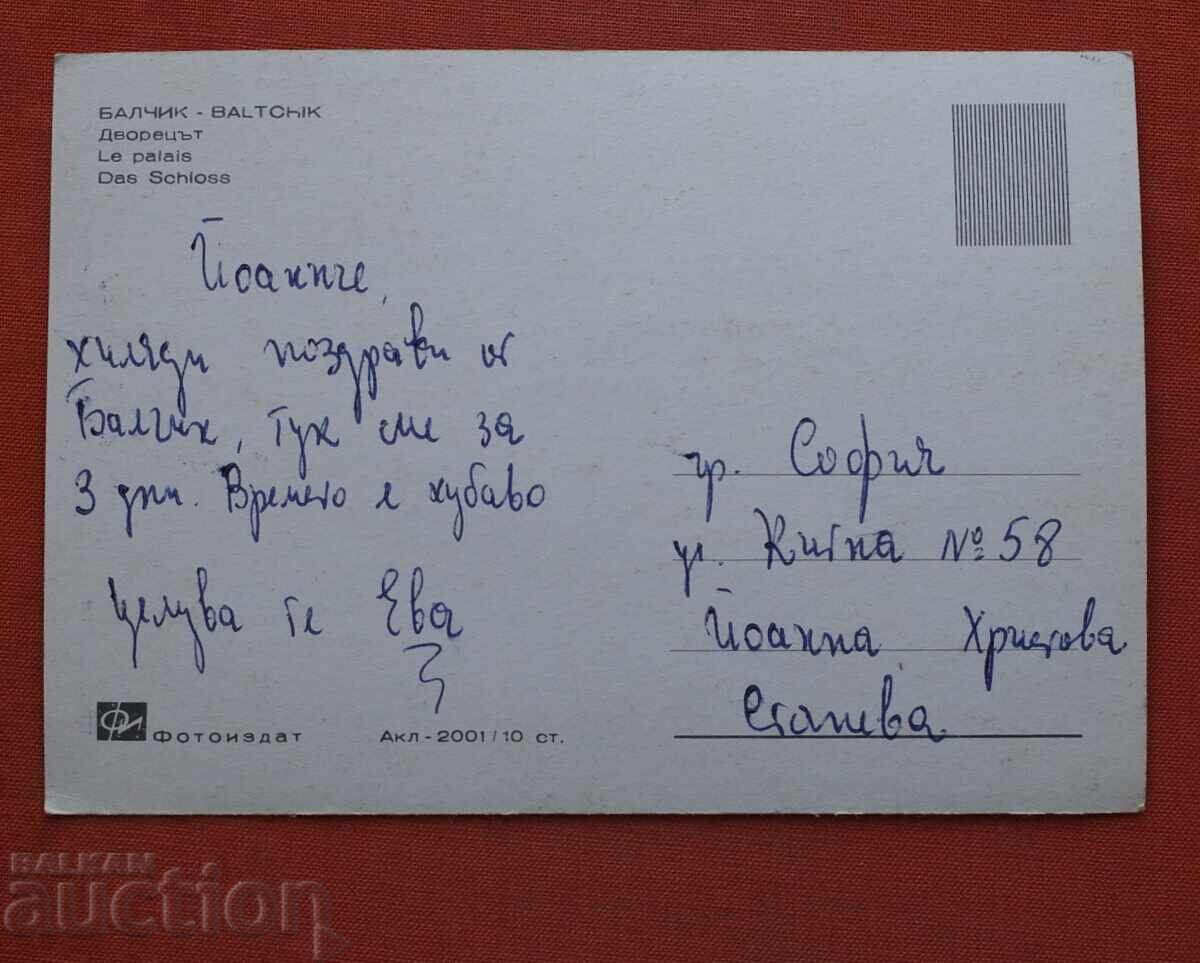 БАЛЧИК - BALTCHIK
Дворецът
Le palais
Das Schloss
Йоанче,
хиляди поздрави от
Балчик, тук сме за
3 дни. Времето е хубаво
Целува те Ева
Фотоиздат
Акл-2001/10 ст.
гр. София
ул. Китна № 58
Йоанна Христова
BALKAN
auction